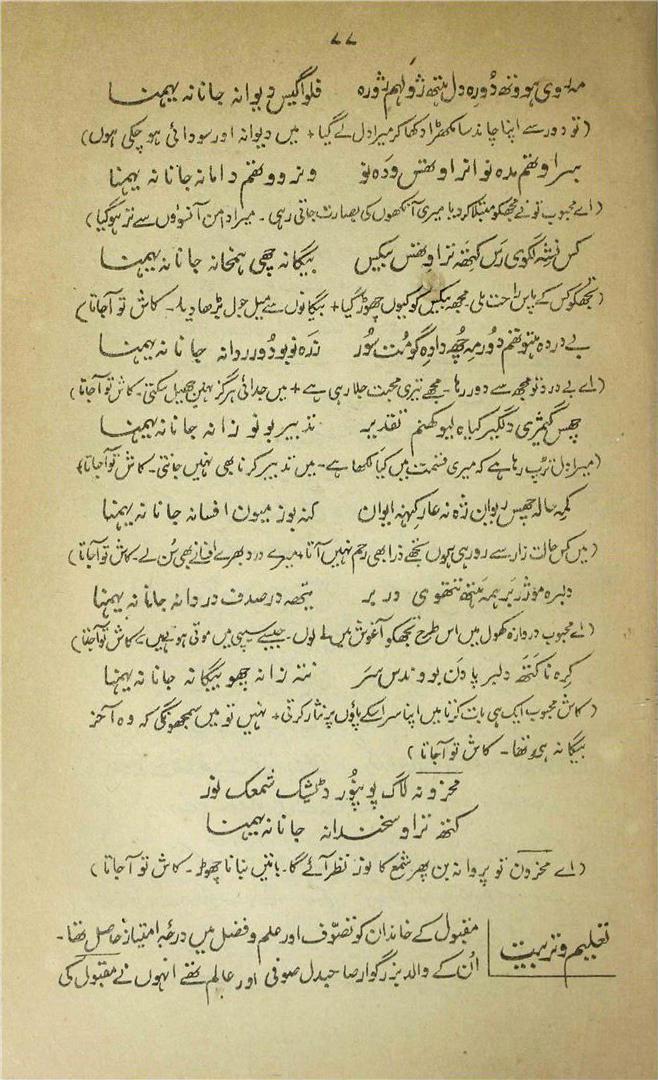 ۷۷
دل ہتھ ژولہم ژورہ فلواگیس دیوانہ جانانہ یہمنا
(تو دور سے اپنا چاند سا مکھڑا دکھا کر میرا دل لے گیا + میں دیوانہ اور سودائی ہو چکی ہوں)
دامانہ جانانہ یہمنا
(اے محبوب تو نے مجھکو مبتلا کر دیا میری آنکھوں کی بصارت جاتی رہی۔ میرا دامن آنسوؤں سے تر ہو گیا)
بیگانہ چھی ہمخانہ جانانہ یہمنا
(تجھکو کس کے پاس راحت ملی۔ مجھ بیکس کو کیوں چھوڑ گیا + بیگانوں سے میل جول بڑھا دیا۔ کاش تو آجاتا)
بے دردہ دور سور ژرہ نو بو دور روانہ جانانہ یہمنا
(اے بے درد تو مجھ سے دور رہا۔ مجھے تیری محبت جلا رہی ہے + میں جدائی ہرگز نہیں جھیل سکتی۔ کاش تو آجاتا)
چھس دلگیر کیاہ لیوکھنم تقدیر تدبیر بو نو زانہ جانانہ یہمنا
(میرا دل تڑپ رہا ہے کہ میری قسمت میں کیا لکھا ہے۔ میں تدبیر کرنا بھی نہیں جانتی۔ کاش تو آجاتا)
کمہ حالہ چھس ژہ نہ عار کنہ بوز میون افسانہ جانانہ یہمنا
(میں کس حالت زار سے رو رہی ہوں تجھے ذرا بھی رحم نہیں آتا + میرے درد بھرے افسانے بھی سن لے۔ کاش تو آجاتا)
در بر یتھہ در صدف دردانہ جانانہ یہمنا
(اے محبوب دروازہ کھول میں اس طرح تجھکو آغوش میں لے لوں۔ جیسے سیپی میں موتی ہوتے ہیں۔ کاش تو آجاتا)
کرہ نا کتھ دلبر پادن بو وندس سر نتہ زانہ چھو بیگانہ جانانہ یہمنا
(کاش محبوب ایک ہی بات کرتا میں اپنا سر اسکے پاؤں پر نثار کرتی + نہیں تو میں سمجھونگی کہ وہ آخر
بیگانہ ہی تھا۔ کاش تو آجاتا)
محزونہ لاگ پونپور ڈیشک شمعک نور
کتھ تراو سخندانہ جانانہ یہمنا
(اے محزون تو پروانہ بن پھر شمع کا نور نظر آئے گا۔ باتیں بنانا چھوڑ۔ کاش تو آجاتا)
تعلیم و تربیت
مقبول کے خاندان کو تصوّف اور علم و فضل میں درجۂ امتیاز حاصل تھا۔
اُن کے والد بزرگوار صاحبدل صوفی اور عالم تھے انہوں نے مقبول کی